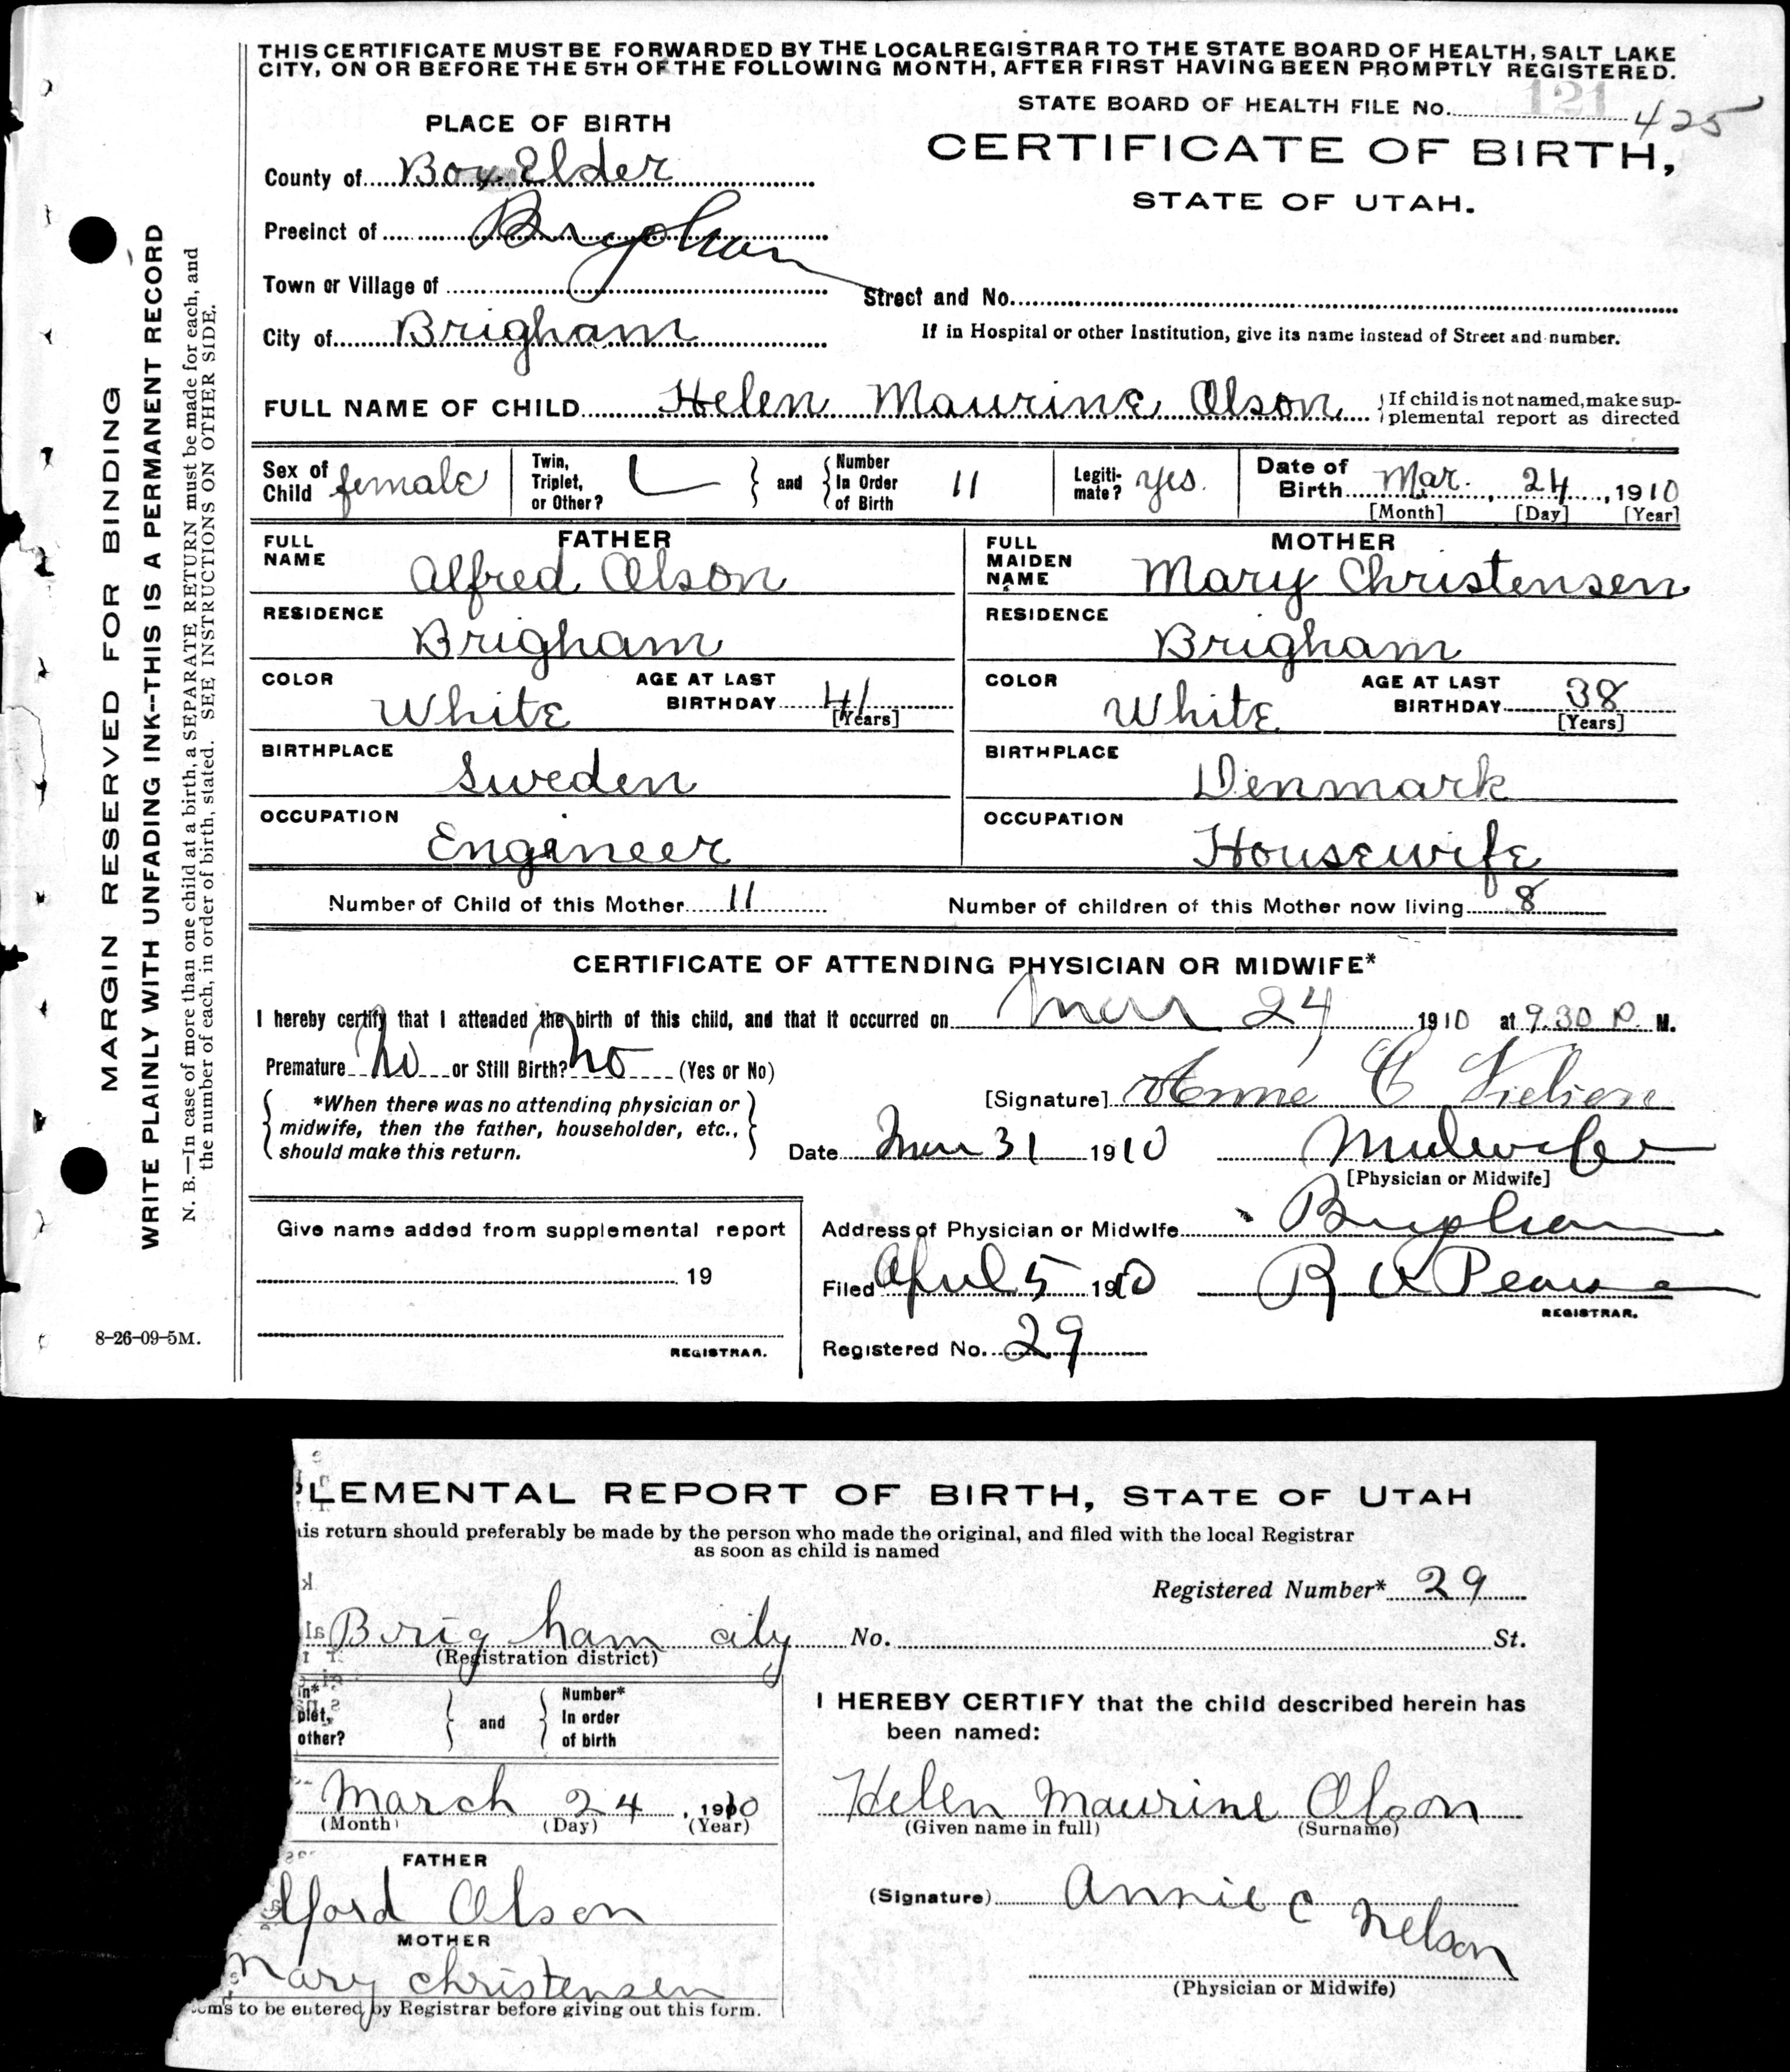 THIS CERTIFICATE MUST BE FORWARDED BY THE LOCAL REGISTRAR TO THE STATE BOARD OF HEALTH, SALT LAKE
CITY, ON OR BEFORE THE 5TH OF THE FOLLOWING MONTH, AFTER FIRST HAVING BEEN PROMPTLY REGISTERED.
STATE BOARD OF HEALTH FILE No. 121 425
PLACE OF BIRTH
CERTIFICATE OF BIRTH,
STATE OF UTAH.
County of Box Elder
Precinct of Brigham
Town or Village of
Street and No.
City of Brigham
If in Hospital or other Institution, give its name instead of Street and number.
FULL NAME OF CHILD Helen Maurine Olson
If child is not named, make sup-
plemental report as directed
Sex of Child female
Twin, Triplet, or Other?
and
Number In Order of Birth 11
Legiti-mate? yes.
Date of Birth Mar. 24, 1910
[Month] [Day] [Year]
FATHER
FULL NAME Alfred Olson
MOTHER
FULL MAIDEN NAME Mary Christensen
RESIDENCE Brigham
RESIDENCE Brigham
COLOR White
AGE AT LAST BIRTHDAY 41 [Years]
COLOR White
AGE AT LAST BIRTHDAY 38 [Years]
BIRTHPLACE Sweden
BIRTHPLACE Denmark
OCCUPATION Engineer
OCCUPATION Housewife
Number of Child of this Mother 11
Number of children of this Mother now living 8
CERTIFICATE OF ATTENDING PHYSICIAN OR MIDWIFE*
I hereby certify that I attended the birth of this child, and that it occurred on Mar 24 1910 at 9.30 P. M.
Premature No or Still Birth? No (Yes or No)
*When there was no attending physician or
midwife, then the father, householder, etc.,
should make this return.
[Signature] Anne C
Date Mar 31 1910
Midwife
[Physician or Midwife]
Give name added from supplemental report
19
REGISTRAR.
Address of Physician or Midwife Brigham
Filed April 5 1910
R A Pearse
REGISTRAR.
Registered No. 29
MARGIN RESERVED FOR BINDING
WRITE PLAINLY WITH UNFADING INK--THIS IS A PERMANENT RECORD
N. B.—In case of more than one child at a birth, a SEPARATE RETURN must be made for each, and
the number of each, in order of birth, stated. SEE INSTRUCTIONS ON OTHER SIDE.
8-26-09-5M.
PLEMENTAL REPORT OF BIRTH, STATE OF UTAH
is return should preferably be made by the person who made the original, and filed with the local Registrar
as soon as child is named
Registered Number* 29
Brigham city No. St.
(Registration district)
in*
plet,
other?
and
Number*
In order
of birth
I HEREBY CERTIFY that the child described herein has
been named:
March 24, 1910
(Month) (Day) (Year)
Helen Maurine Olson
(Given name in full) (Surname)
FATHER
lford Olsen
(Signature) Annie C Nelson
MOTHER
Mary christensen
(Physician or Midwife)
ems to be entered by Registrar before giving out this form.